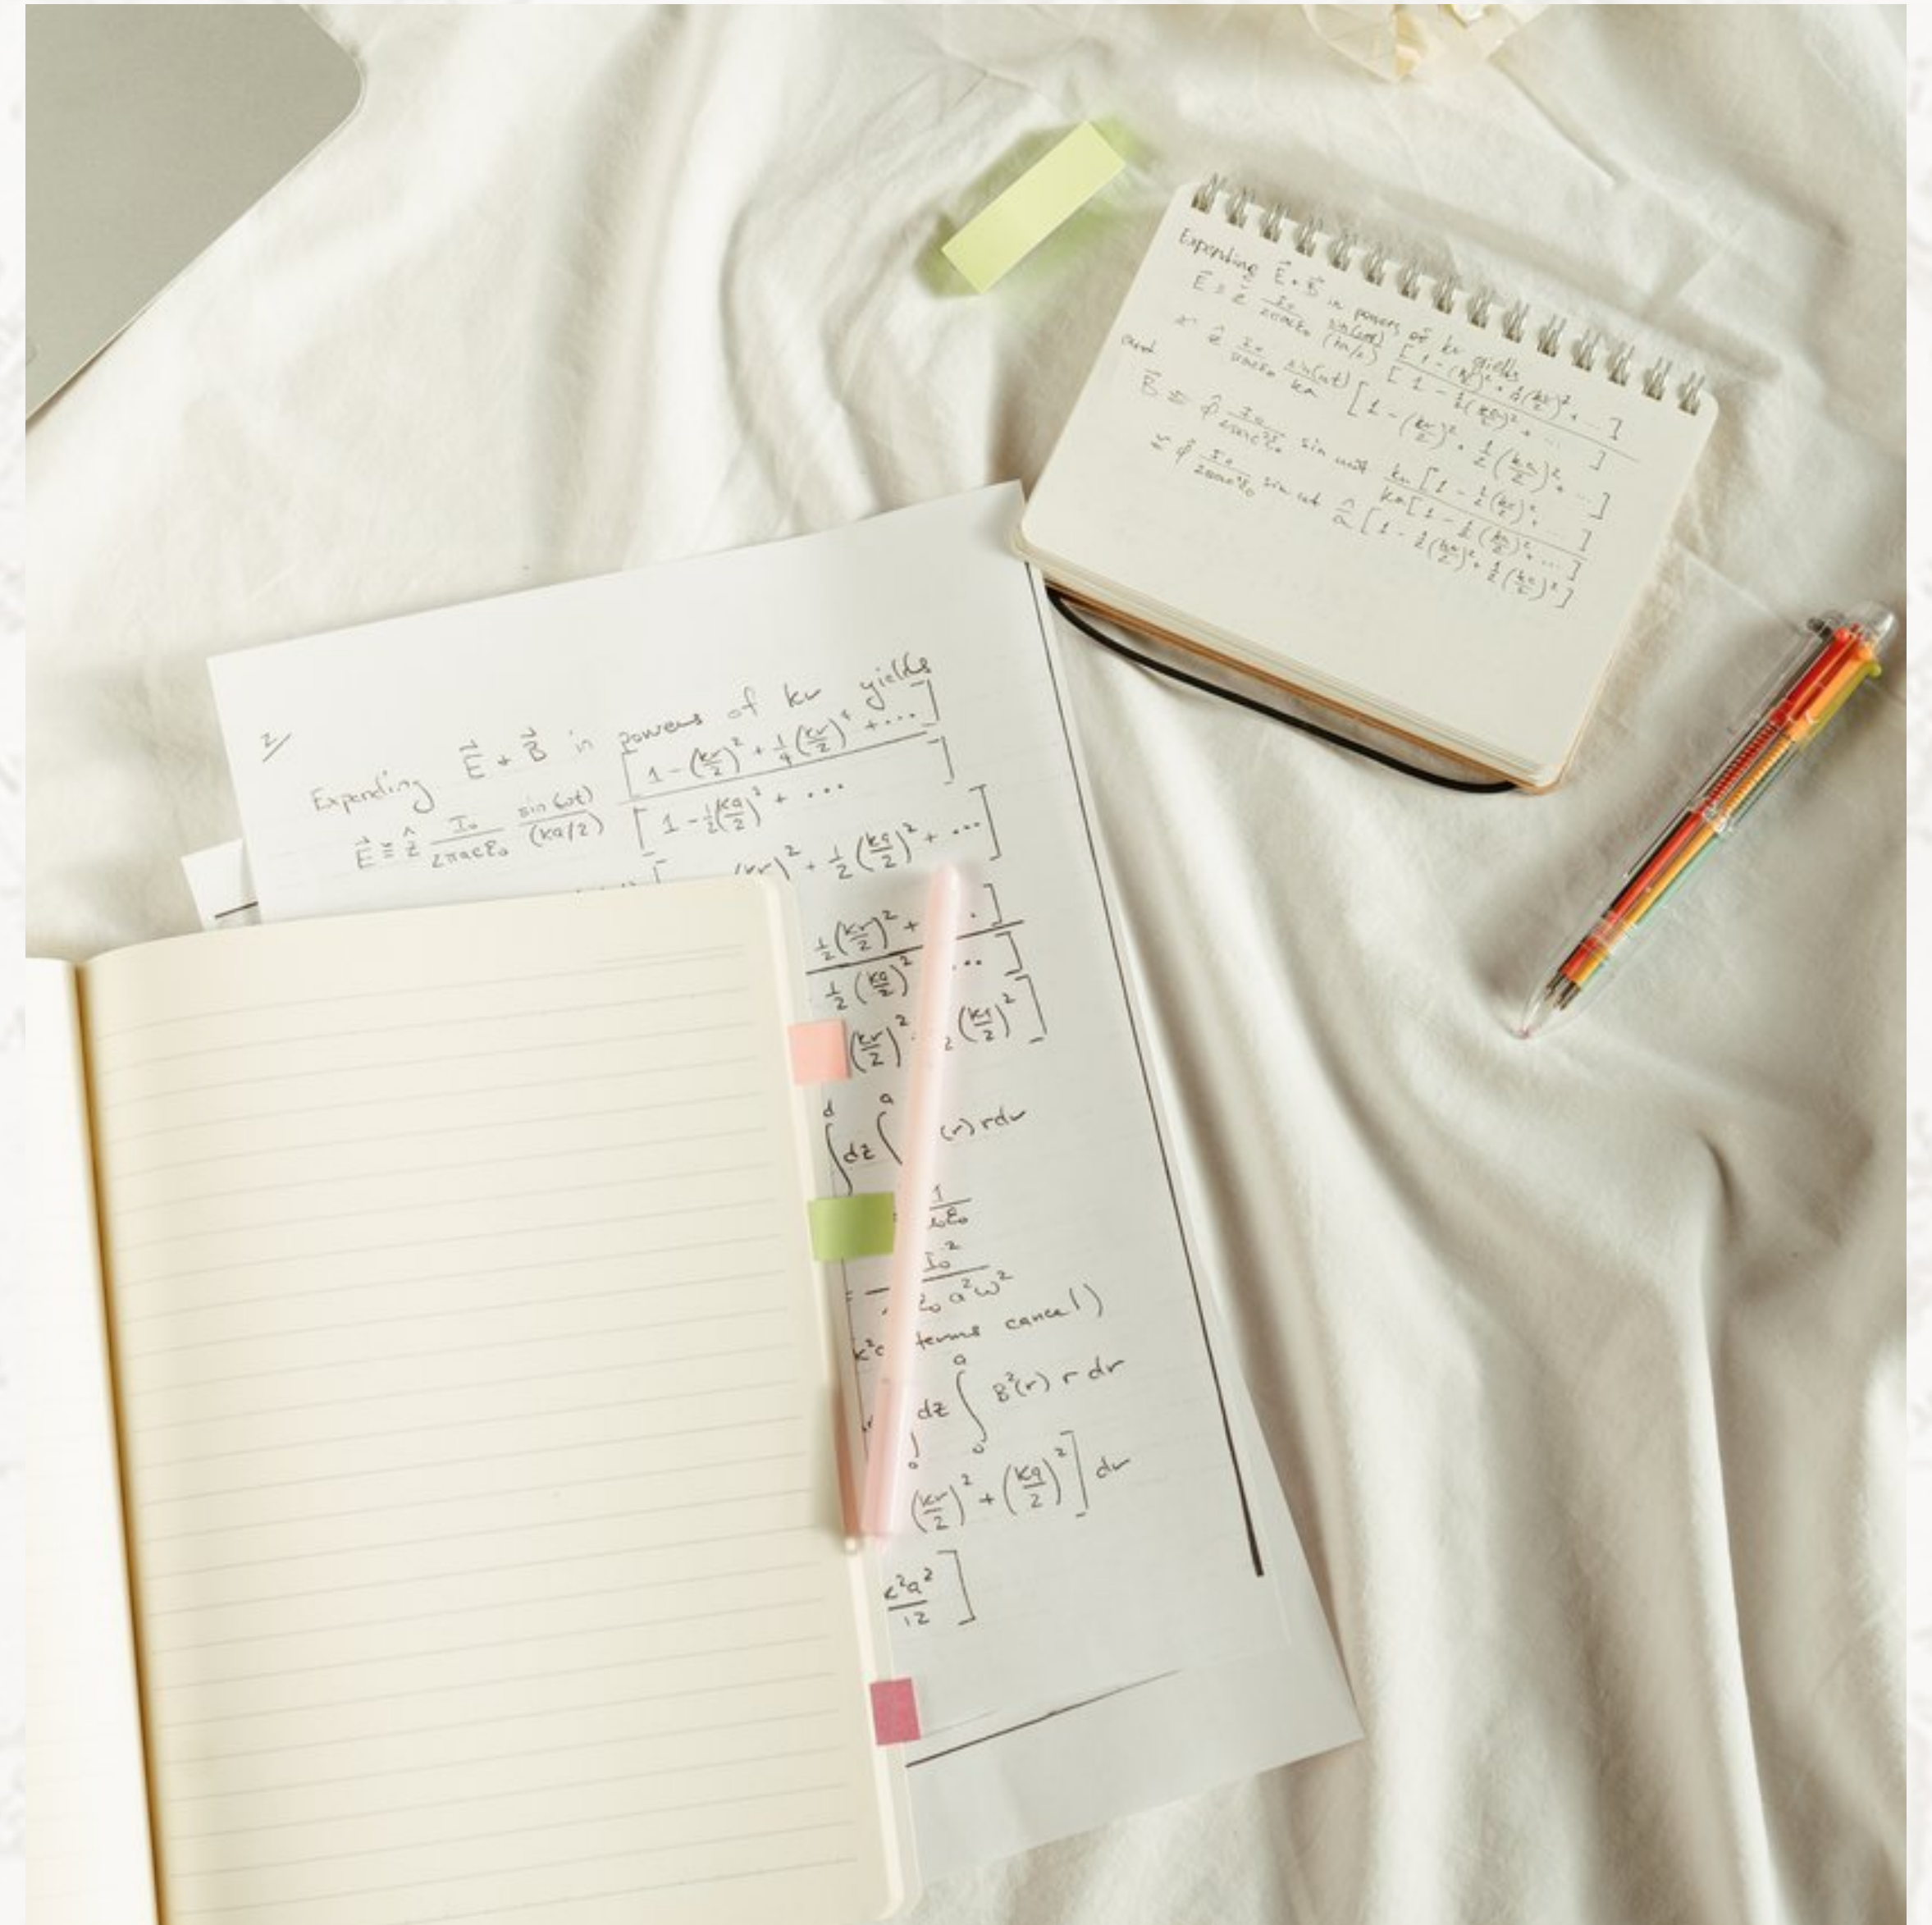 Expending E⃗ + B⃗ in powers of kr yields
E⃗ ≅ ẑ I₀/(2πacε₀) sin(ωt)/(ka/2) [1 - (kr/2)² + 1/4(kr/2)⁴ + ...] / [1 - 1/2(ka/2)² + ...]
≅ ẑ I₀/(πacε₀) sin(ωt)/ka [1 - (kr/2)² + 1/2(ka/2)² + ...]
and
B⃗ ≅ φ̂ I₀/(2πac²ε₀) sin ωt kr[1 - 1/2(kr/2)² + ...] / ka[1 - 1/2(ka/2)² + ...]
≅ φ̂ I₀/(2πac²ε₀) sin ωt [1 - 1/2(kr/2)² + 1/2(ka/2)²]
2/
Expending E⃗ + B⃗ in powers of kr yields
E⃗ ≅ ẑ I₀/(2πacε₀) sin(ωt)/(ka/2) [1 - (kr/2)² + 1/4(kr/2)⁴ + ...] / [1 - 1/2(ka/2)² + ...]
)² + 1/2(ka/2)² + ...]
1/2(kr/2)² + .]
1/2(ka/2)² ...]
(kr/2)² 2(ka/2)²]
∫ d dz ∫ a (r) rdr
1/ε₀
= I₀²/ε₀a²ω²
k² terms cancel)
∫₀ dz ∫₀ᵃ B²(r) r dr
(kr/2)² + (ka/2)²] dr
k²a²/12]